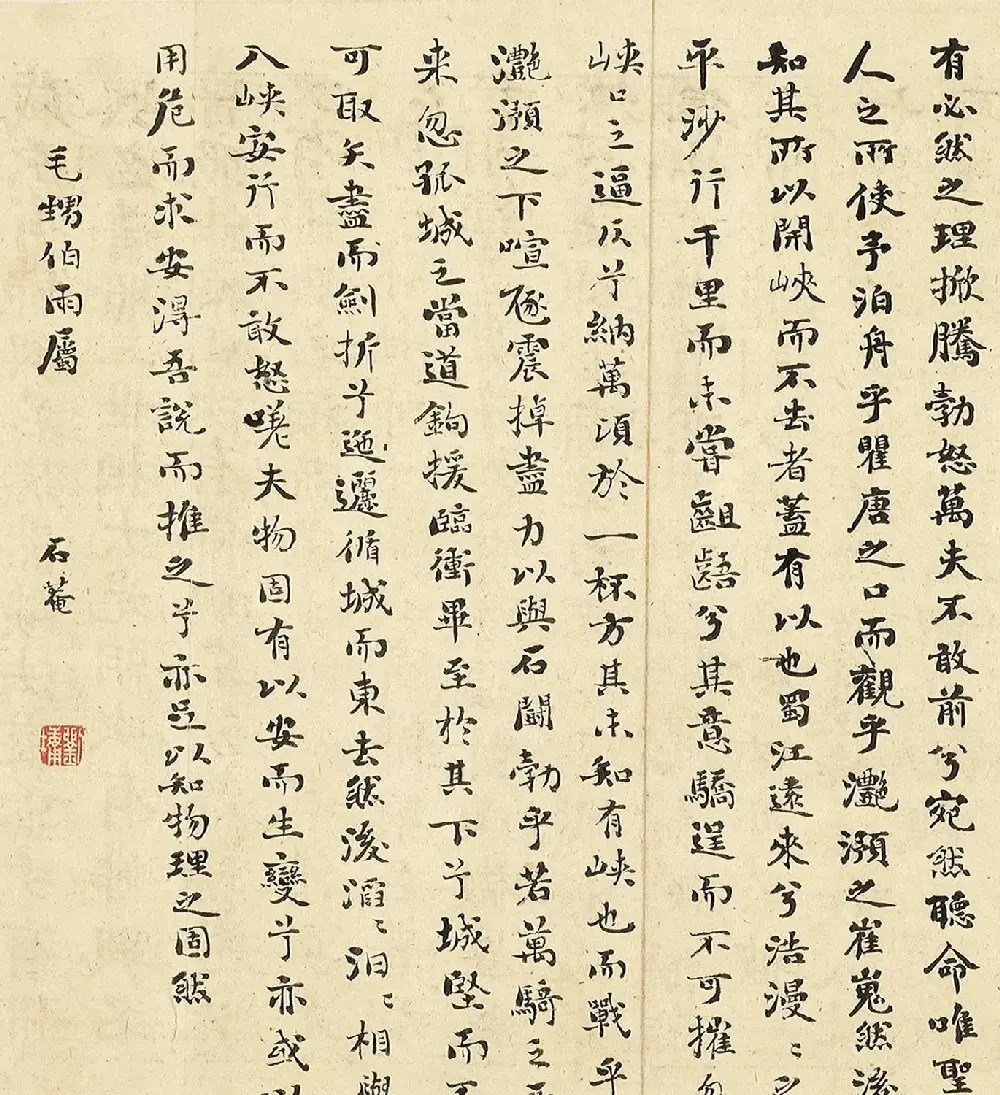 有必然之理掀騰勃怒萬夫不敢前兮宛然聽命唯聖
人之所使予泊舟乎瞿唐之口而觀乎灧澦之崔嵬然後
知其所以開峽而不去者蓋有以也蜀江遠來兮浩漫〻之
平沙行千里而未嘗齟齬兮其意驕逞而不可摧忽
峽口之逼仄兮納萬頃於一杯方其未知有峽也而戰乎
灧澦之下喧豗震掉盡力以與石鬬勃乎若萬騎之
来忽孤城之當道鉤援臨衝畢至於其下兮城堅而不
可取矢盡而劍折兮迤邐循城而東去然後滔〻汨〻相與
入峽安行而不敢怒嗟夫物固有以安而生變兮亦或以
用危而求安得吾說而推之兮亦足以知物理之固然
毛甥伯雨屬 石菴
劉墉